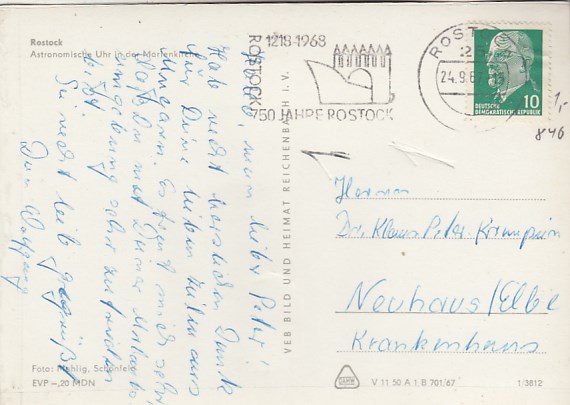 Rostock
Astronomische Uhr in der Marienkirche
1218-1968
ROSTOCK
750 JAHRE ROSTOCK
ROSTOCK
24.9.67
DEUTSCHE
DEMOKRATISCHE REPUBLIK
10
1,-
846
mein lieber Peter!
Hab recht herzlichen Dank
für Deine lieben Zeilen aus
Ungarn. Es freut mich sehr,
daß Du mit Deiner
Umgebung sehr zufrieden
bist.
Sei recht lieb gegrüßt
Dein Wolfgang
VEB BILD UND HEIMAT REICHENBACH I. V.
Herrn
Dr. Klaus Peter
Neuhaus/Elbe
Krankenhaus
Foto: Mahlig, Schönfeld
EVP -,20 MDN
V 11 50 A 1 B 701/67
1/3812